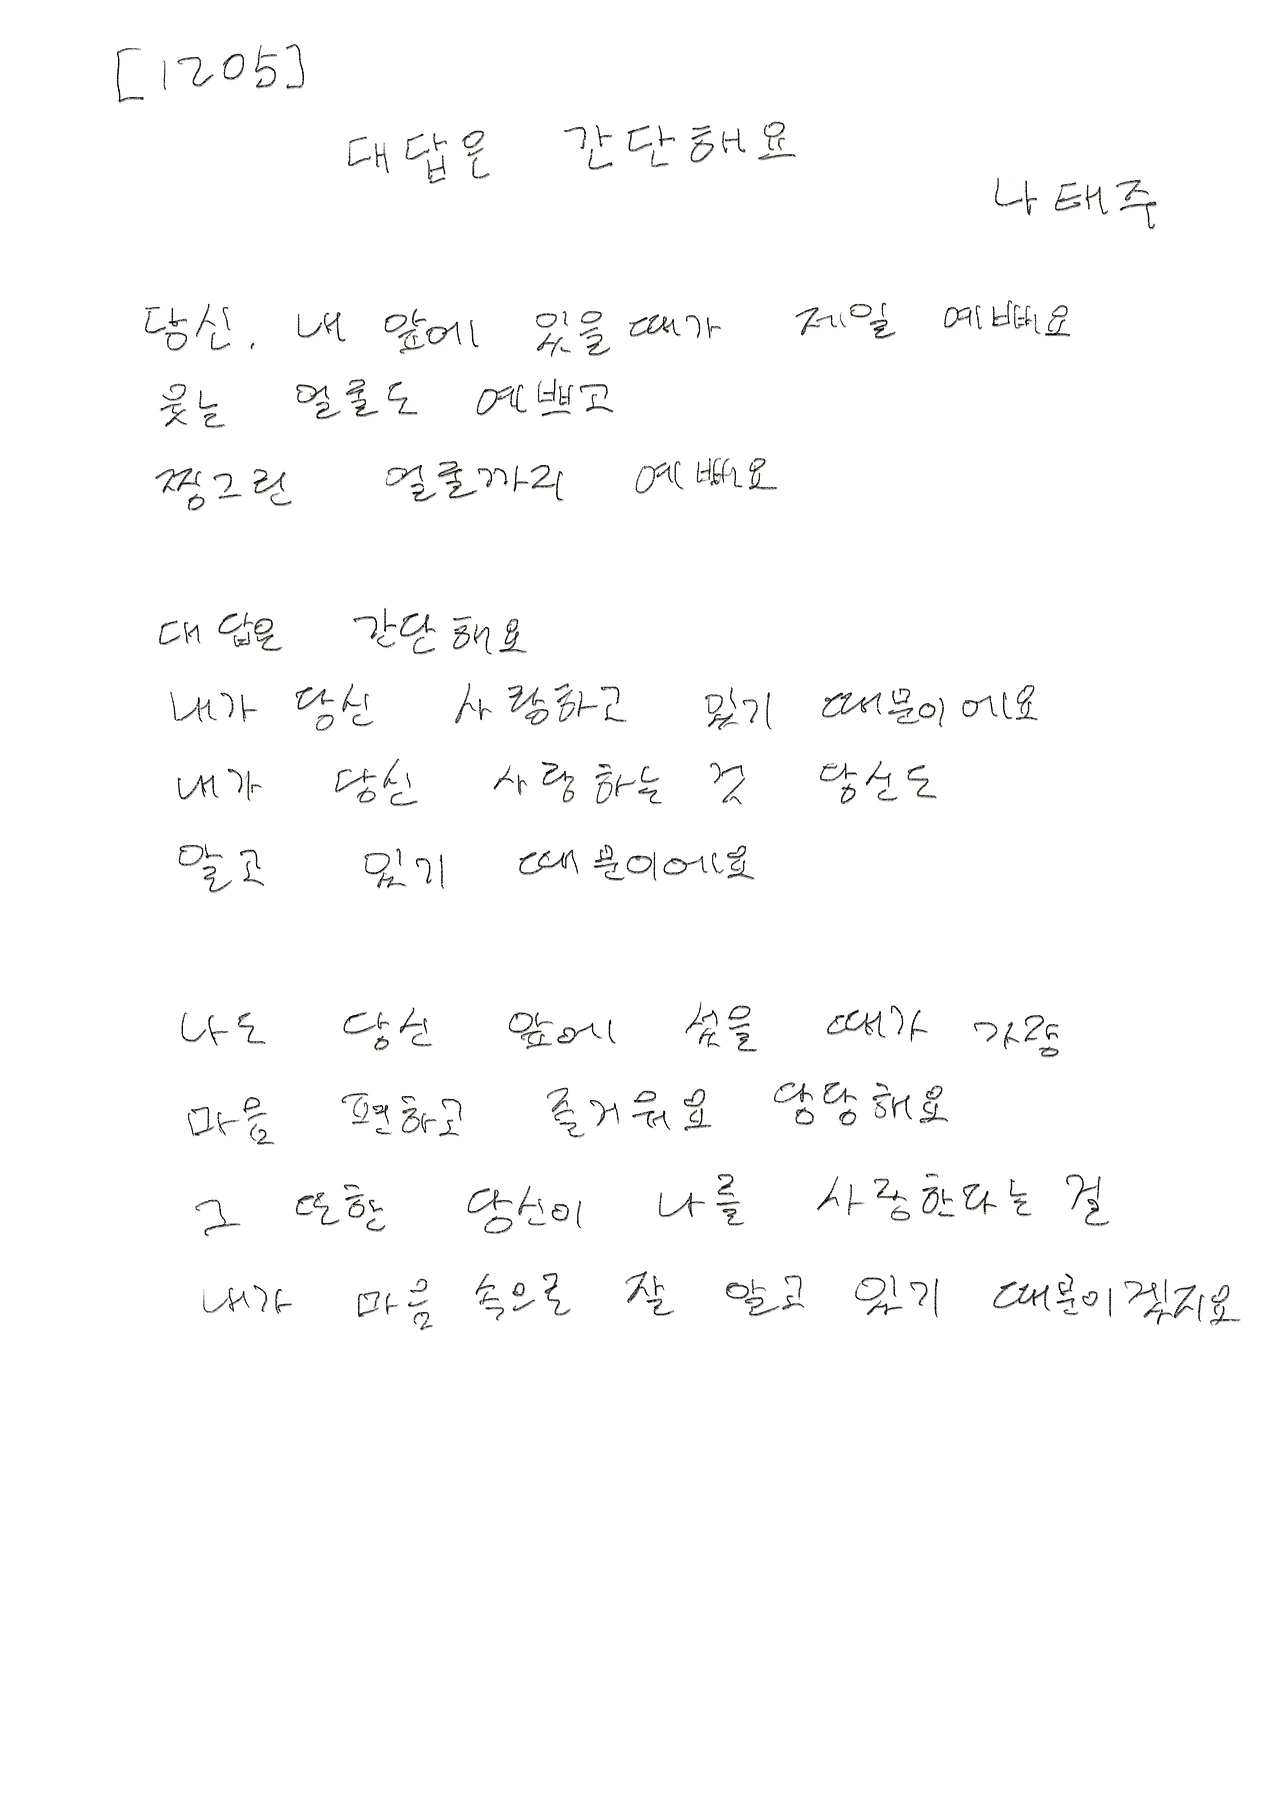 [1205]
대답은 간단해요
나태주
당신, 내 앞에 있을 때가 제일 예뻐요
웃는 얼굴도 예쁘고
찡그린 얼굴까지 예뻐요
대답은 간단해요
내가 당신 사랑하고 있기 때문이에요
내가 당신 사랑하는 것 당신도
알고 있기 때문이에요
나도 당신 앞에 섰을 때가 가장
마음 편하고 즐거워요 당당해요
그 또한 당신이 나를 사랑한다는 걸
내가 마음 속으로 잘 알고 있기 때문이겠지요